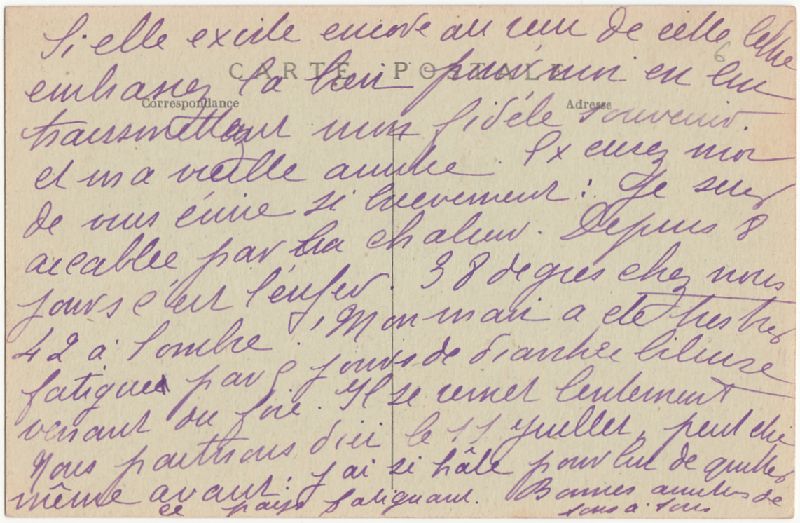 Si elle existe encore au reçu de cette lettre
CARTE POSTALE
embrassez la bien pour moi en lui
Correspondance
Adresse
transmettant mon fidéle souvenir
et ma vieille amitié. Excusez moi
de vous écrire si brievement: Je suis
accablée par la chaleur. Depuis 8
jours c'est l'enfer. 38 degres chez nous
42 à l'ombre. Mon mari a été tres tres
fatigué par jours de diarrhée bilieuse
venant du foie. Il se remet lentement
Nous partirons d'ici le 11 juillet, peut etre
même avant: j'ai si hâte pour lui de quitter
ce pays fatiguant. Bonnes amitiés de
tous à tous
6